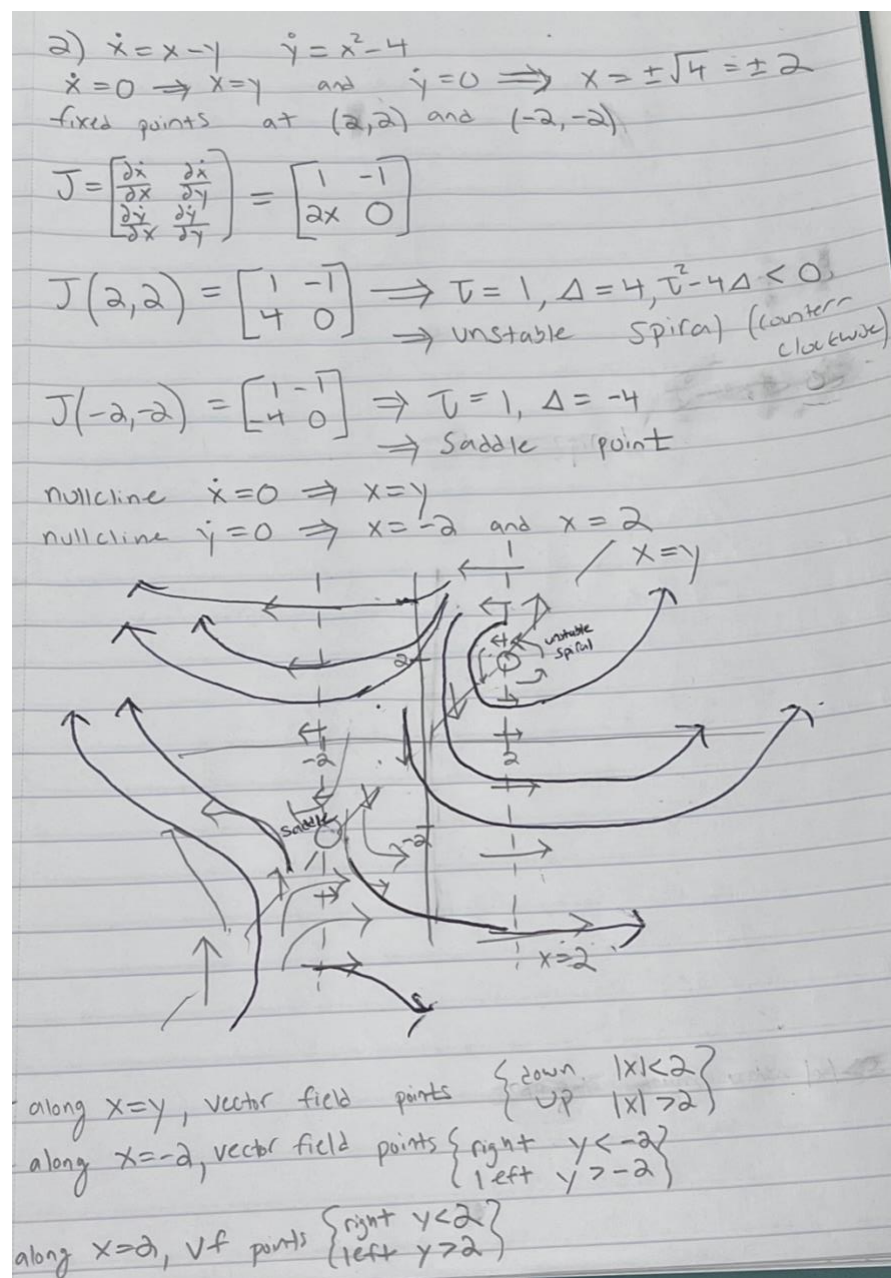 2) ẋ = x-y ẏ = x²-4
ẋ=0 ⇒ x=y and ẏ=0 ⇒ x=±√4 = ±2
fixed points at (2,2) and (-2,-2)
J = [∂ẋ/∂x ∂ẋ/∂y; ∂ẏ/∂x ∂ẏ/∂y] = [1 -1; 2x 0]
J(2,2) = [1 -1; 4 0] ⇒ τ = 1, Δ = 4, τ²-4Δ < 0
⇒ unstable spiral (counter-
clockwise)
J(-2,-2) = [1 -1; -4 0] ⇒ τ = 1, Δ = -4
⇒ saddle point
nullcline ẋ=0 ⇒ x=y
nullcline ẏ=0 ⇒ x=-2 and x=2
x=y
unstable
spiral
2
-2
2
saddle
-2
x=2
along x=y, vector field points {down |x|<2
up |x|>2}
along x=-2, vector field points {right y<-2
left y>-2}
along x=2, vf points {right y<2
left y>2}